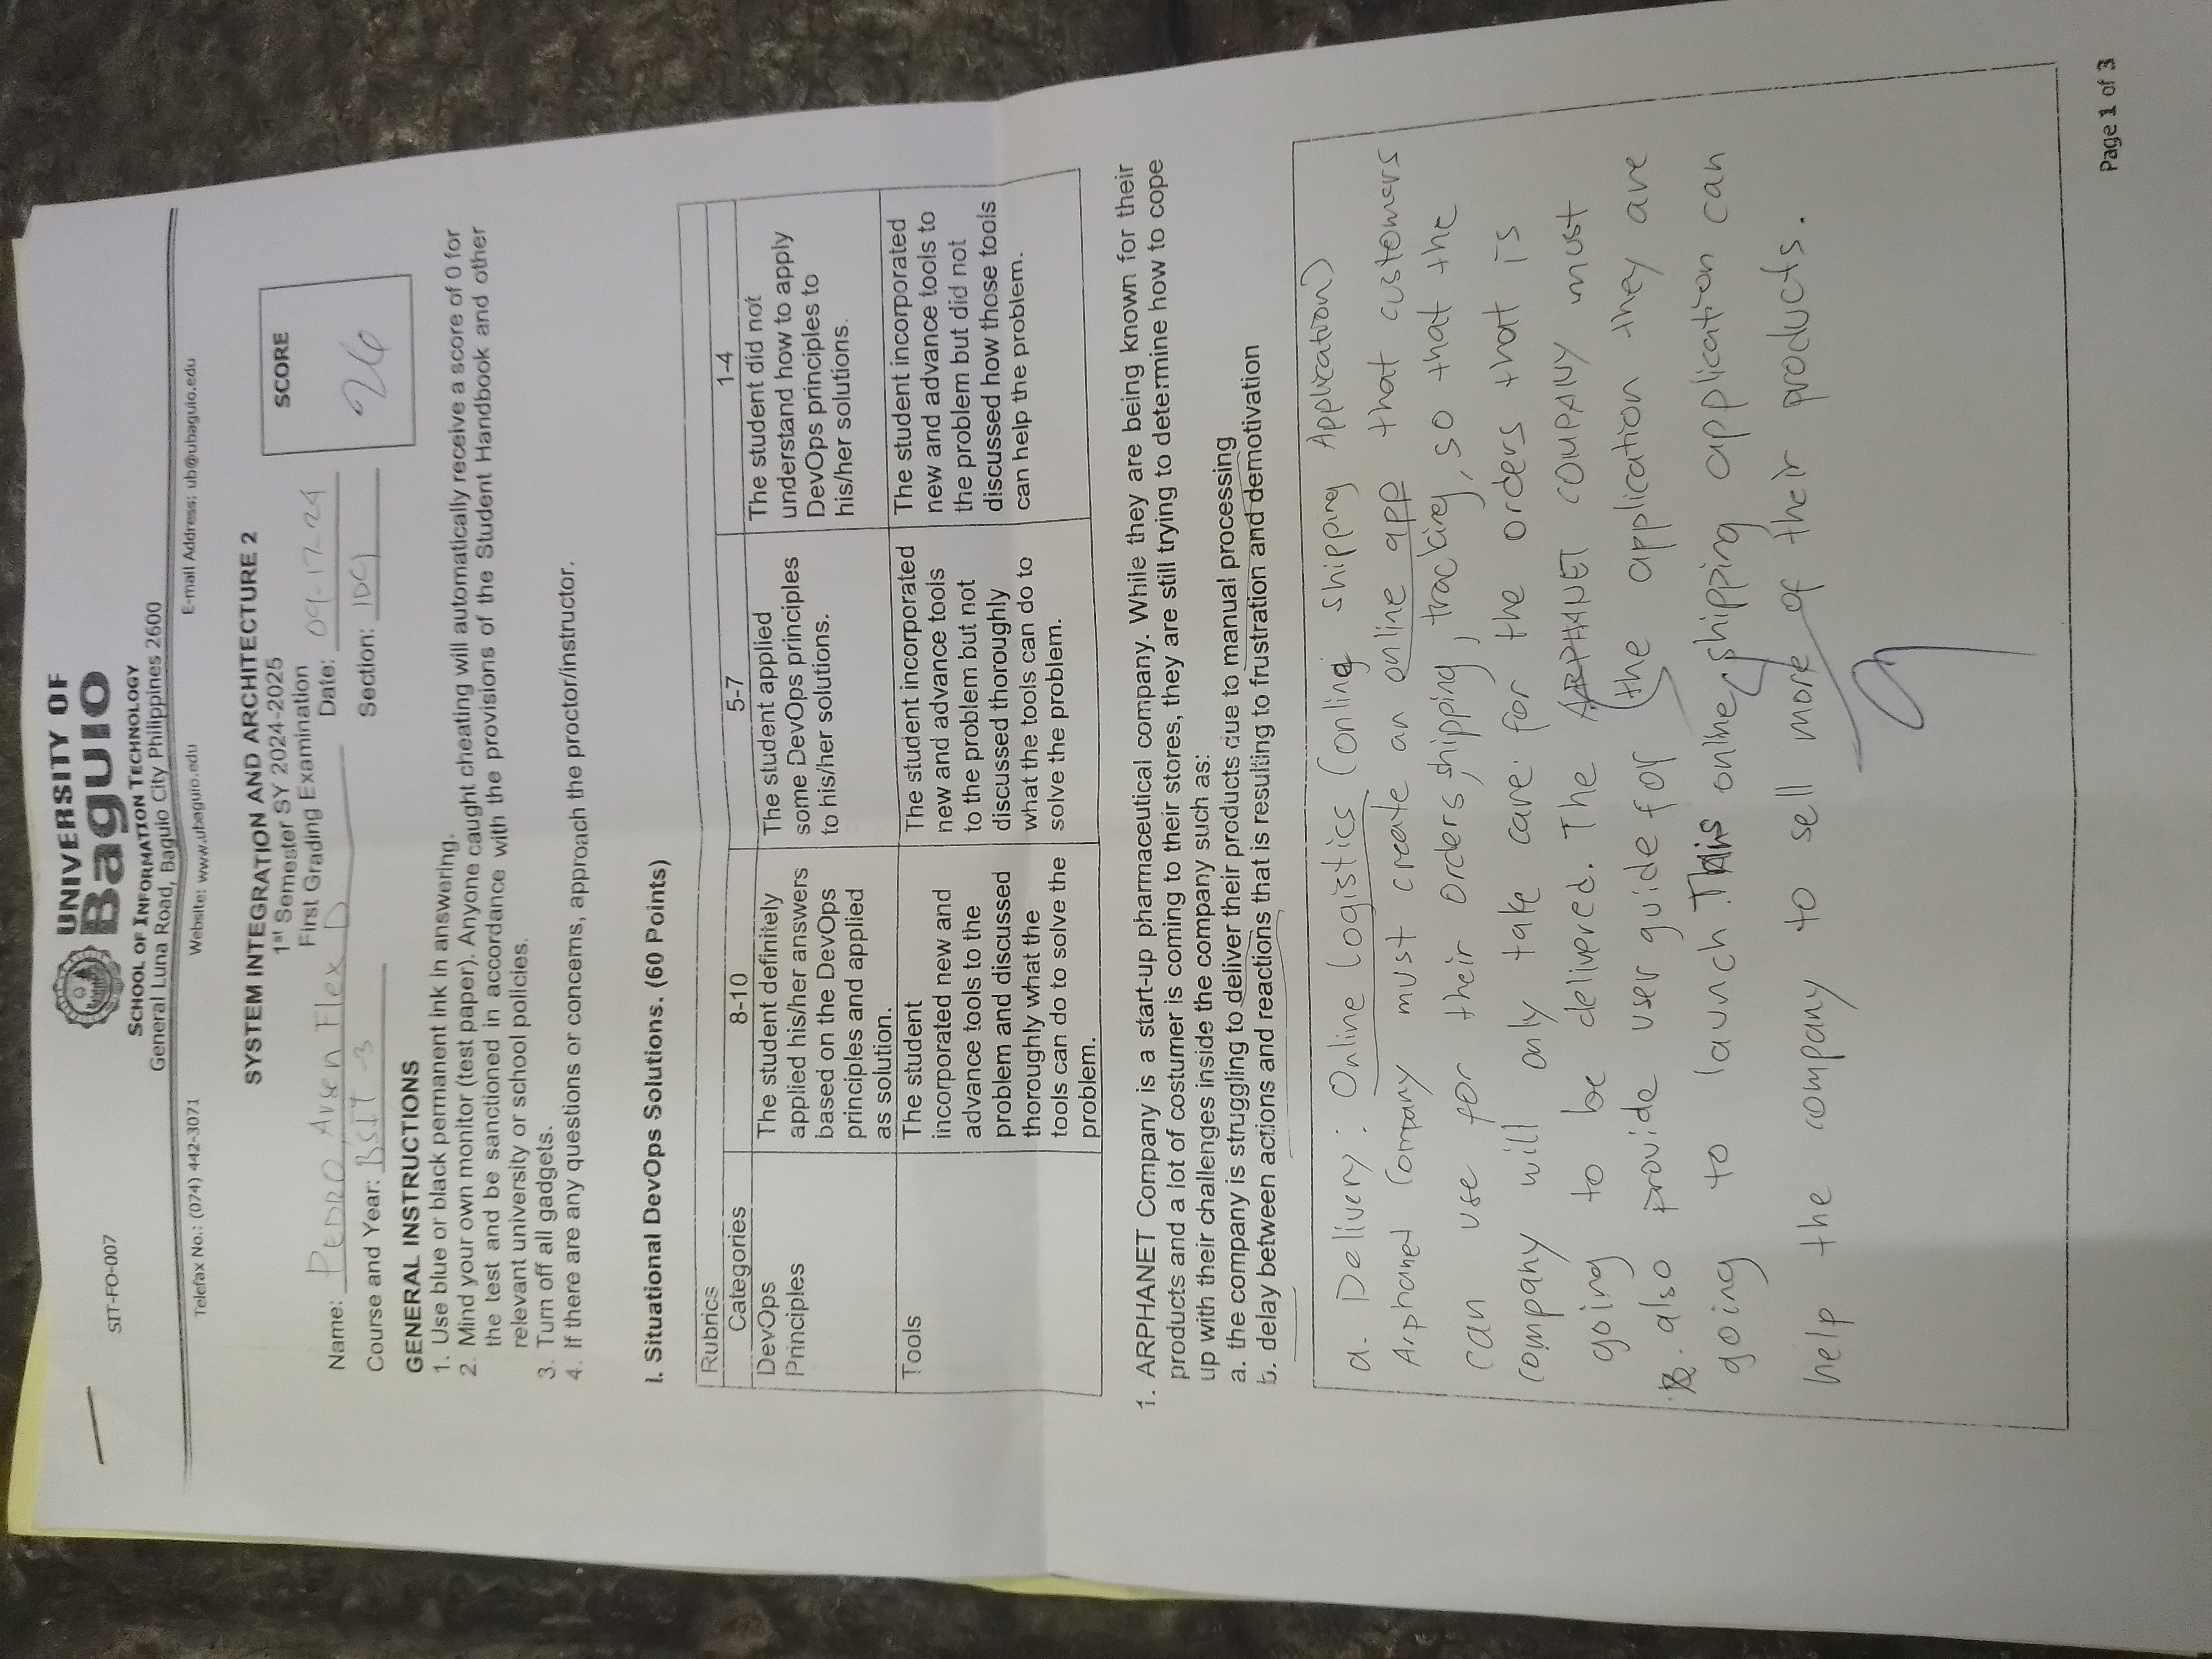 SIT-FO-007
UNIVERSITY OF
Baguio
SCHOOL OF INFORMATION TECHNOLOGY
General Luna Road, Baguio City Philippines 2600
Telefax No.: (074) 442-3071 Website: www.ubaguio.edu E-mail Address: ub@ubaguio.edu
SYSTEM INTEGRATION AND ARCHITECTURE 2
1st Semester SY 2024-2025
First Grading Examination
SCORE
26
Name: PEDRO, Arsen Flex D Date: 09-17-24
Course and Year: BSIT -3 Section:
GENERAL INSTRUCTIONS
1. Use blue or black permanent ink in answering.
2. Mind your own monitor (test paper). Anyone caught cheating will automatically receive a score of 0 for
the test and be sanctioned in accordance with the provisions of the Student Handbook and other
relevant university or school policies.
3. Turn off all gadgets.
4. If there are any questions or concerns, approach the proctor/instructor.
I. Situational DevOps Solutions. (60 Points)
Rubrics
Categories 8-10 5-7 1-4
DevOps
Principles
The student definitely
applied his/her answers
based on the DevOps
principles and applied
as solution.
The student applied
some DevOps principles
to his/her solutions.
The student did not
understand how to apply
DevOps principles to
his/her solutions.
Tools
The student
incorporated new and
advance tools to the
problem and discussed
thoroughly what the
tools can do to solve the
problem.
The student incorporated
new and advance tools
to the problem but not
discussed thoroughly
what the tools can do to
solve the problem.
The student incorporated
new and advance tools to
the problem but did not
discussed how those tools
can help the problem.
1. ARPHANET Company is a start-up pharmaceutical company. While they are being known for their
products and a lot of costumer is coming to their stores, they are still trying to determine how to cope
up with their challenges inside the company such as:
a. the company is struggling to deliver their products due to manual processing
b. delay between actions and reactions that is resulting to frustration and demotivation
a. Delivery: Online Logistics (online Shipping Application)
Arphanet Company must create an online app that customers
can use for their orders, shipping, tracking, so that the
company will only take care for the orders that is
going to be delivered. The ARPHANET COMPANY must
also provide user guide for the application they are
going to launch. This online shipping application can
help the company to sell more of their products.
9
Page 1 of 3